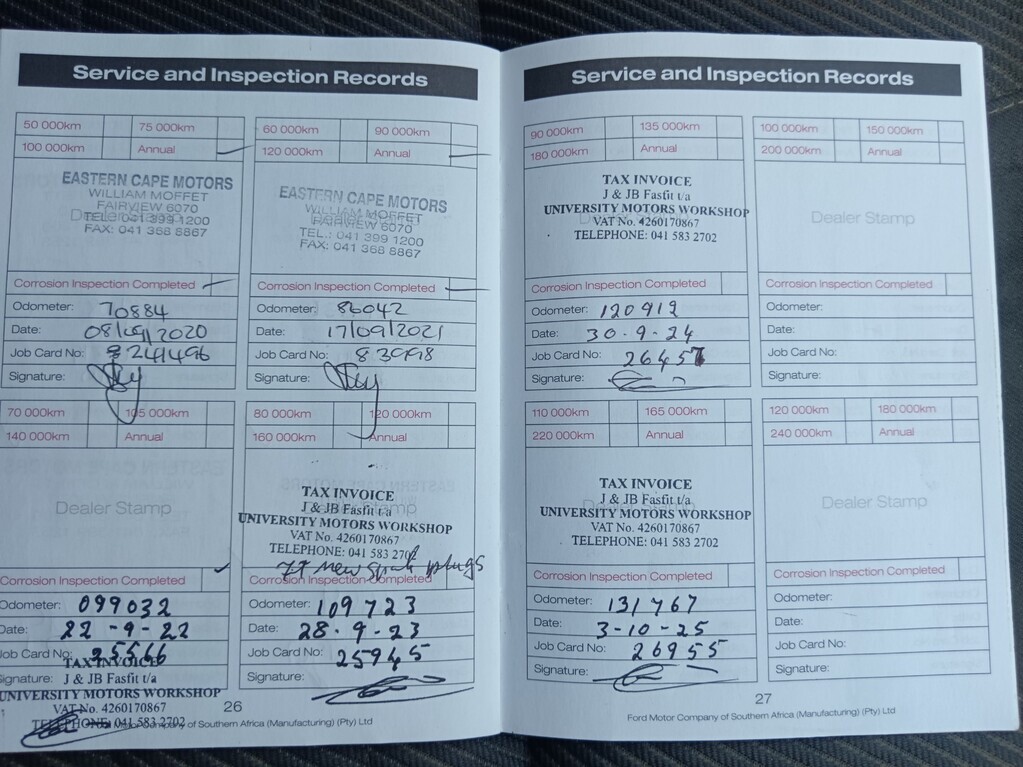 Service and Inspection Records
50 000km 75 000km
100 000km Annual
EASTERN CAPE MOTORS
WILLIAM MOFFET
FAIRVIEW 6070
TEL: 041 399 1200
FAX: 041 368 8867
Corrosion Inspection Completed
Odometer: 70884
Date: 08/09/2020
Job Card No: 8241496
Signature:
60 000km 90 000km
120 000km Annual
EASTERN CAPE MOTORS
WILLIAM MOFFET
FAIRVIEW 6070
TEL.: 041 399 1200
FAX: 041 368 8867
Corrosion Inspection Completed
Odometer: 86042
Date: 17/09/2021
Job Card No: 83998
Signature:
70 000km 105 000km
140 000km Annual
Dealer Stamp
Corrosion Inspection Completed
Odometer: 099032
Date: 22-9-22
Job Card No: 25566
TAX INVOICE
Signature: J & JB Fasfit t/a
UNIVERSITY MOTORS WORKSHOP
VAT No. 4260170867
TELEPHONE: 041 583 2702
80 000km 120 000km
160 000km Annual
TAX INVOICE
J & JB Fasfit t/a
UNIVERSITY MOTORS WORKSHOP
VAT No. 4260170867
TELEPHONE: 041 583 2702
new spark plugs
Corrosion Inspection Completed
Odometer: 109723
Date: 28.9.23
Job Card No: 25945
Signature:
26
Motor Company of Southern Africa (Manufacturing) (Pty) Ltd
Service and Inspection Records
90 000km 135 000km
180 000km Annual
TAX INVOICE
J & JB Fasfit t/a
UNIVERSITY MOTORS WORKSHOP
VAT No. 4260170867
TELEPHONE: 041 583 2702
Corrosion Inspection Completed
Odometer: 120912
Date: 30.9.24
Job Card No: 26457
Signature:
100 000km 150 000km
200 000km Annual
Dealer Stamp
Corrosion Inspection Completed
Odometer:
Date:
Job Card No:
Signature:
110 000km 165 000km
220 000km Annual
TAX INVOICE
J & JB Fasfit t/a
UNIVERSITY MOTORS WORKSHOP
VAT No. 4260170867
TELEPHONE: 041 583 2702
Corrosion Inspection Completed
Odometer: 131767
Date: 3-10-25
Job Card No: 26955
Signature:
120 000km 180 000km
240 000km Annual
Dealer Stamp
Corrosion Inspection Completed
Odometer:
Date:
Job Card No:
Signature:
27
Ford Motor Company of Southern Africa (Manufacturing) (Pty) Ltd